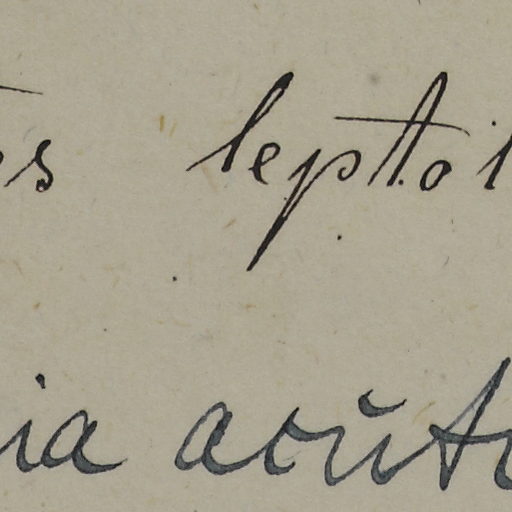 s leptoi
ia acŭt